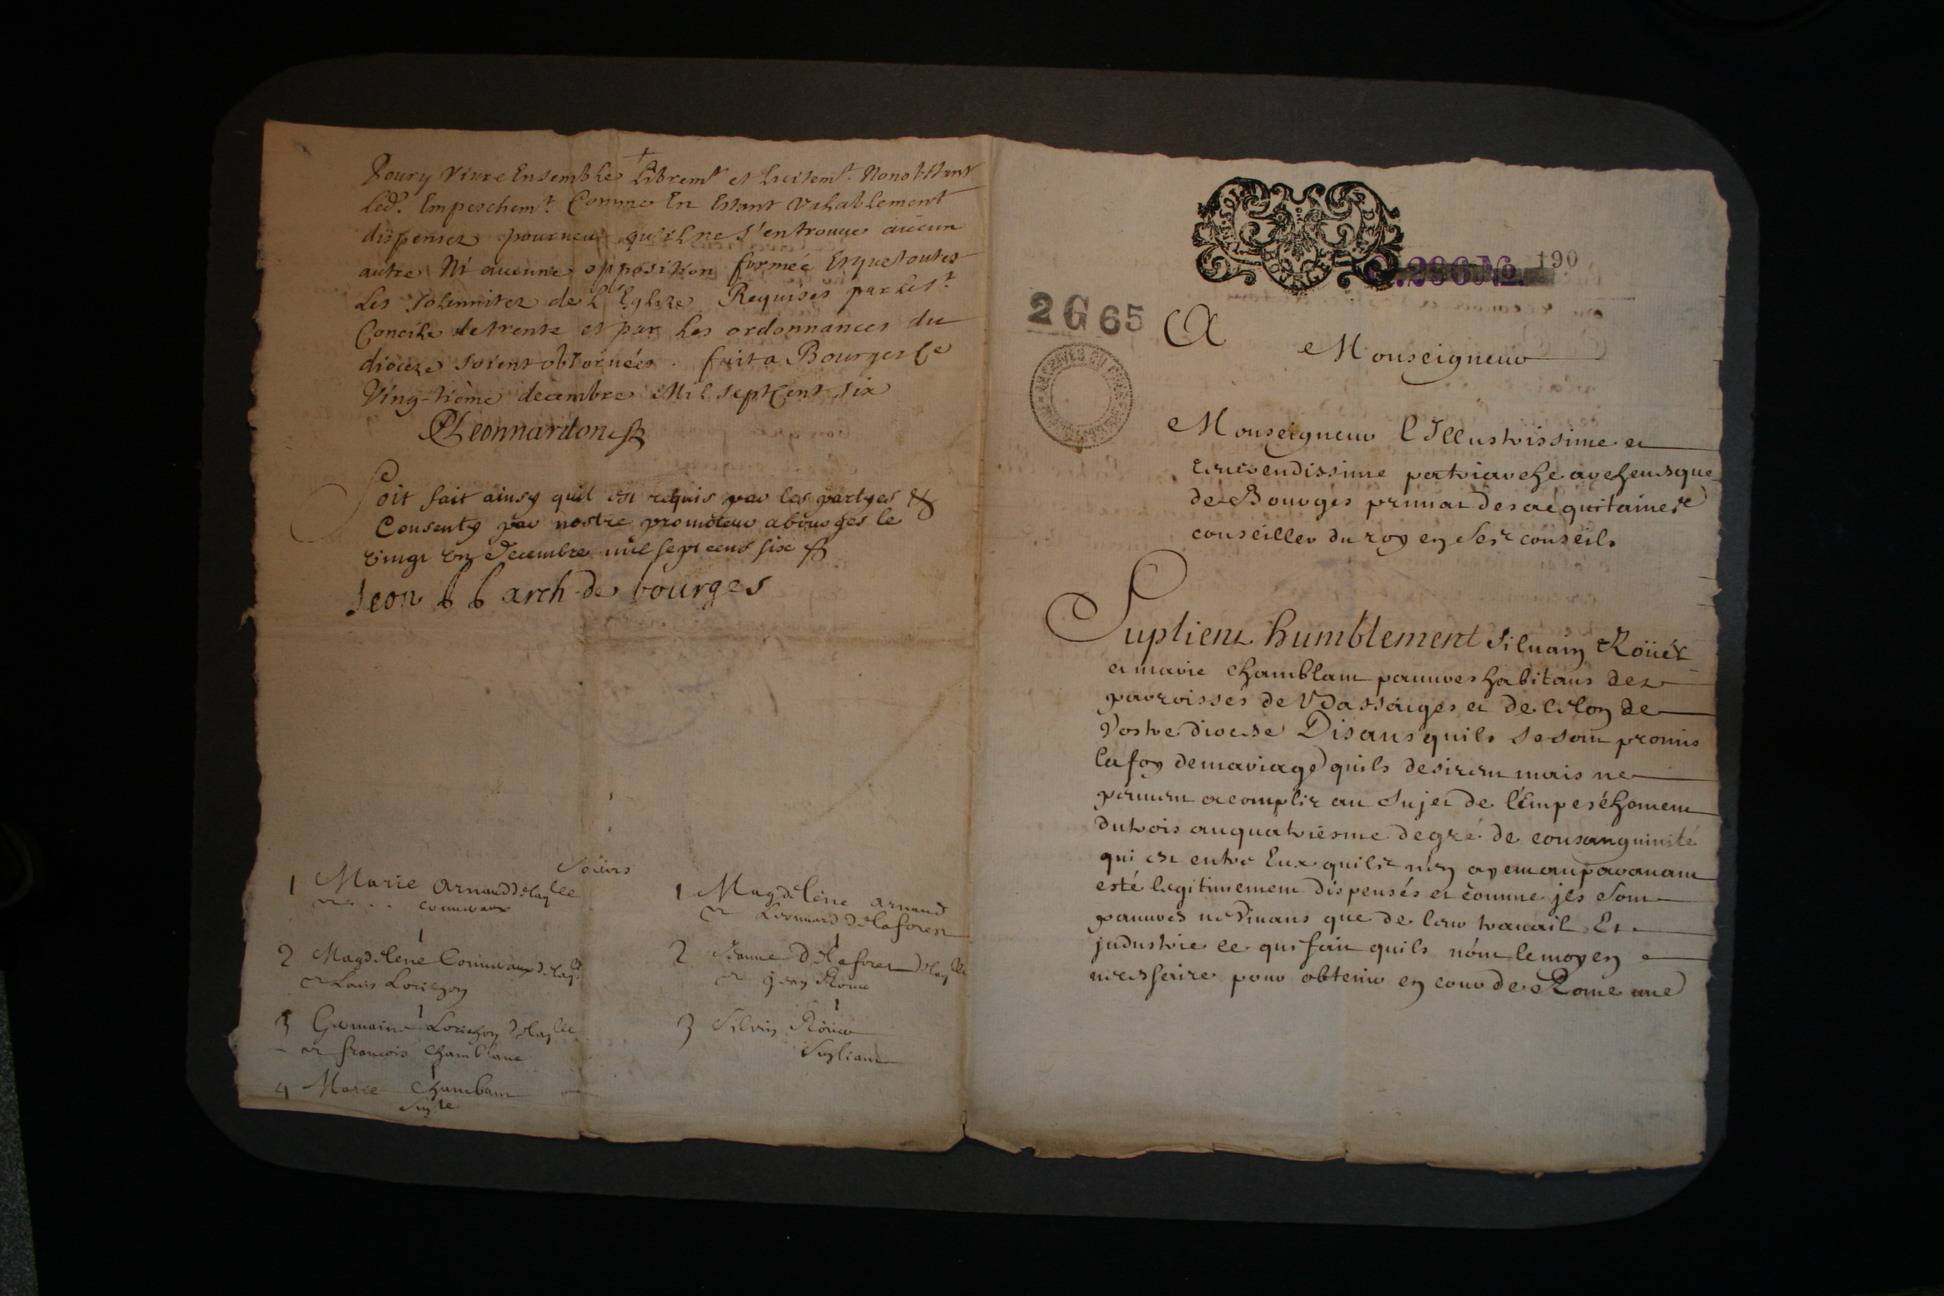 Poury Vivre Ensemble Libremt et Licitemt. Nonobstant
led. Empeschemt. Comme En Estant Valablement
dispensez pourueu qu'il ne s'en trouue aucun
autre Ni aucunne opposition formée Et que toutes
Les Solemnitez de L'Eglize Requises par le St.
Concile de trente et par les ordonnances du
dioceze soient obseruées. fait a Bourges Ce
Vingtième decembre Mil sept Cent six
Leonnardon
Soit fait ainsy quil est requis par les partyes &
Consenty par nostre promoteur a bourges le
vingt un decembre mil sept cens six
Leon P P arch. de bourges
Soeurs
1 Marie Arnaud delaqlle
et
2 Magdelene
et Louis Lorichon
3 Germaine Lorichon delaqlle
et francois Chamblant
4 Marie Chamblant
Supte
1 Magdelene Arnaud
et Leonnard delaforest
2 Jeanne Delaforest delaqlle
et Jean Roüer
3 Silvain Roüer
Supliant
C.296 No. 190
2 G 65
A
Monseigneur
Monseigneur l'Illustrissime et
reuerendissime patriarche archeuesque
de Bourges primat des acquitaines
conseiller du roy en ses conseils
Suplient humblement Siluain Roüer
et marie Chamblant pauures habitans des
parroisses de et de de
Vostre diocese Disans quils se sont promis
la foy de mariage quils desirent mais ne
peuuent acomplir au sujet de l'Empeschement
du trois au quatriesme degré de consanguinité
qui est entre Eux quils n'en ayent auparauant
esté legitimement dispensés et comme jls sont
pauures ne viuans que de leur trauail Et
jndustrie ce qui fait quils n'ont le moyen
necessaire pour obtenir en cour de Rome une